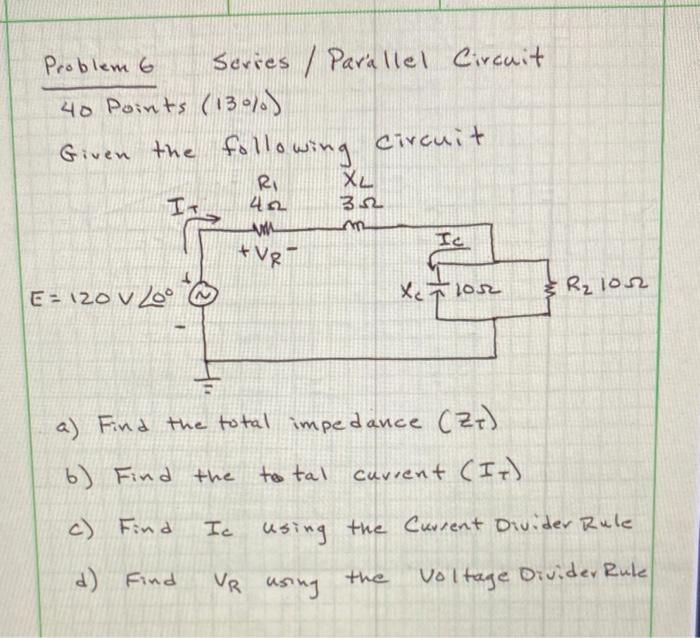 Problem 6 Series / Parallel Circuit
40 Points (13%)
Given the following circuit
R1 XL
IT 4Ω 3Ω
+ VR -
Ic
E = 120 V ∠0° + Xc 10Ω R2 10Ω
-
a) Find the total impedance (ZT)
b) Find the total current (IT)
c) Find Ic using the Current Divider Rule
d) Find VR using the Voltage Divider Rule